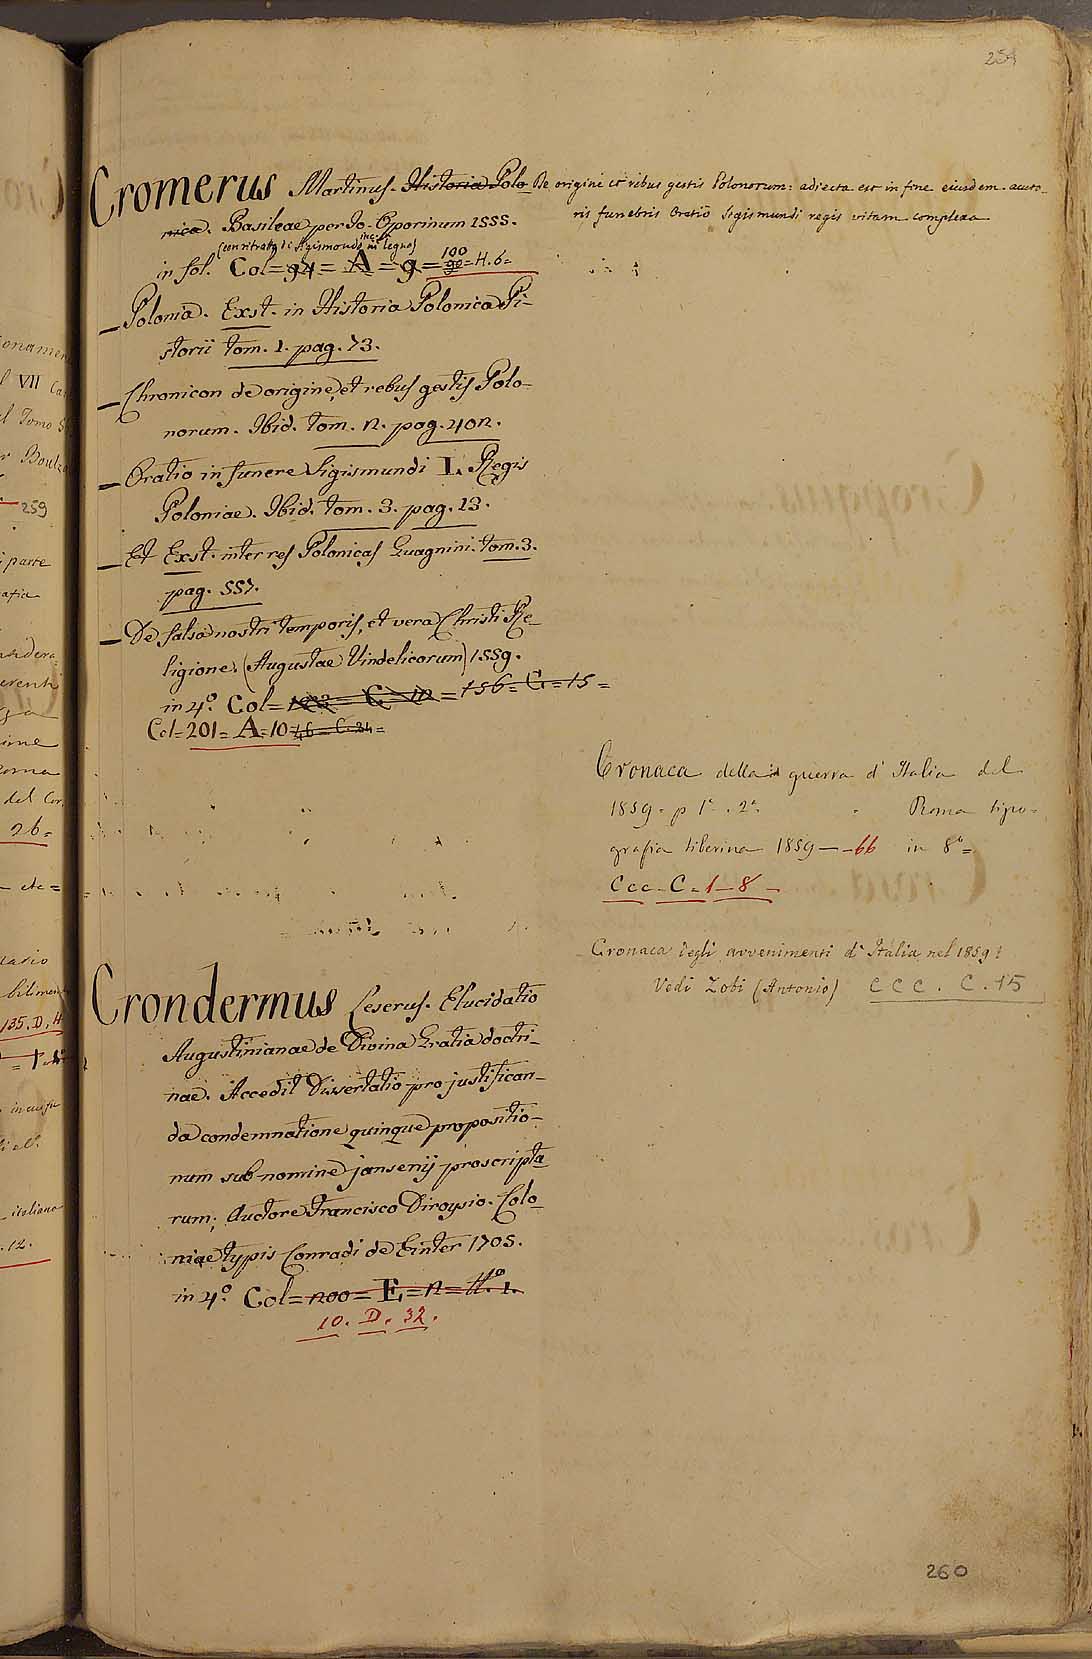 254
Cromerus Martinus. Historia Polo De origine et rebus gestis Polonorum: adjecta est in fine eiusdem aucto-
ris funebris Oratio Sigismundi regis vitam complexa
nica. Basileae per Jo. Oporinum 1555.
(con ritratto di Sigismondo inc. in legno)
in fol. Col = 94 = A = 9 = 100 = H. 6 =
— Polonia. Exst. in Historia Polonica Pi-
storii tom. 1. pag. 73.
— Chronicon de origine, et rebus gestis Polo-
norum. Ibid. tom. 2. pag. 402.
— Oratio in funere Sigismundi I. Regis
Poloniae. Ibid. tom. 3. pag. 13.
— Et Exst. inter res Polonicas Guagnini. tom. 3.
pag. 557.
— De falsa nostri temporis, et vera Christi Re-
ligione. (Augustae Vindelicorum) 1559.
in 4.º Col = = C = = 156 = C = 15 =
Col = 201 = A = 10 46 = C. 24 =
Cronaca della guerra d' Italia del
1859. p 1ª. 2ª. Roma tipo-
grafia tiberina 1859 — 66 in 8º =
CCC - C - 1 - 8 -
Cronaca degli avvenimenti d' Italia nel 1859:
Vedi Zobi (Antonio) CCC. C. 15
Crondermus Ceserus. Elucidatio
Augustinianae de Divina Gratia doctri-
nae. Accedit Dissertatio pro justifican-
da condemnatione quinque propositio-
num sub nomine jansenij proscripta
rum; Auctore Francisco Diroysio. Colo
niae typis Conradi de Einter 1705.
in 4.º Col = 200 = E = 2 = Hº. 1.
10. D. 32.
260
259